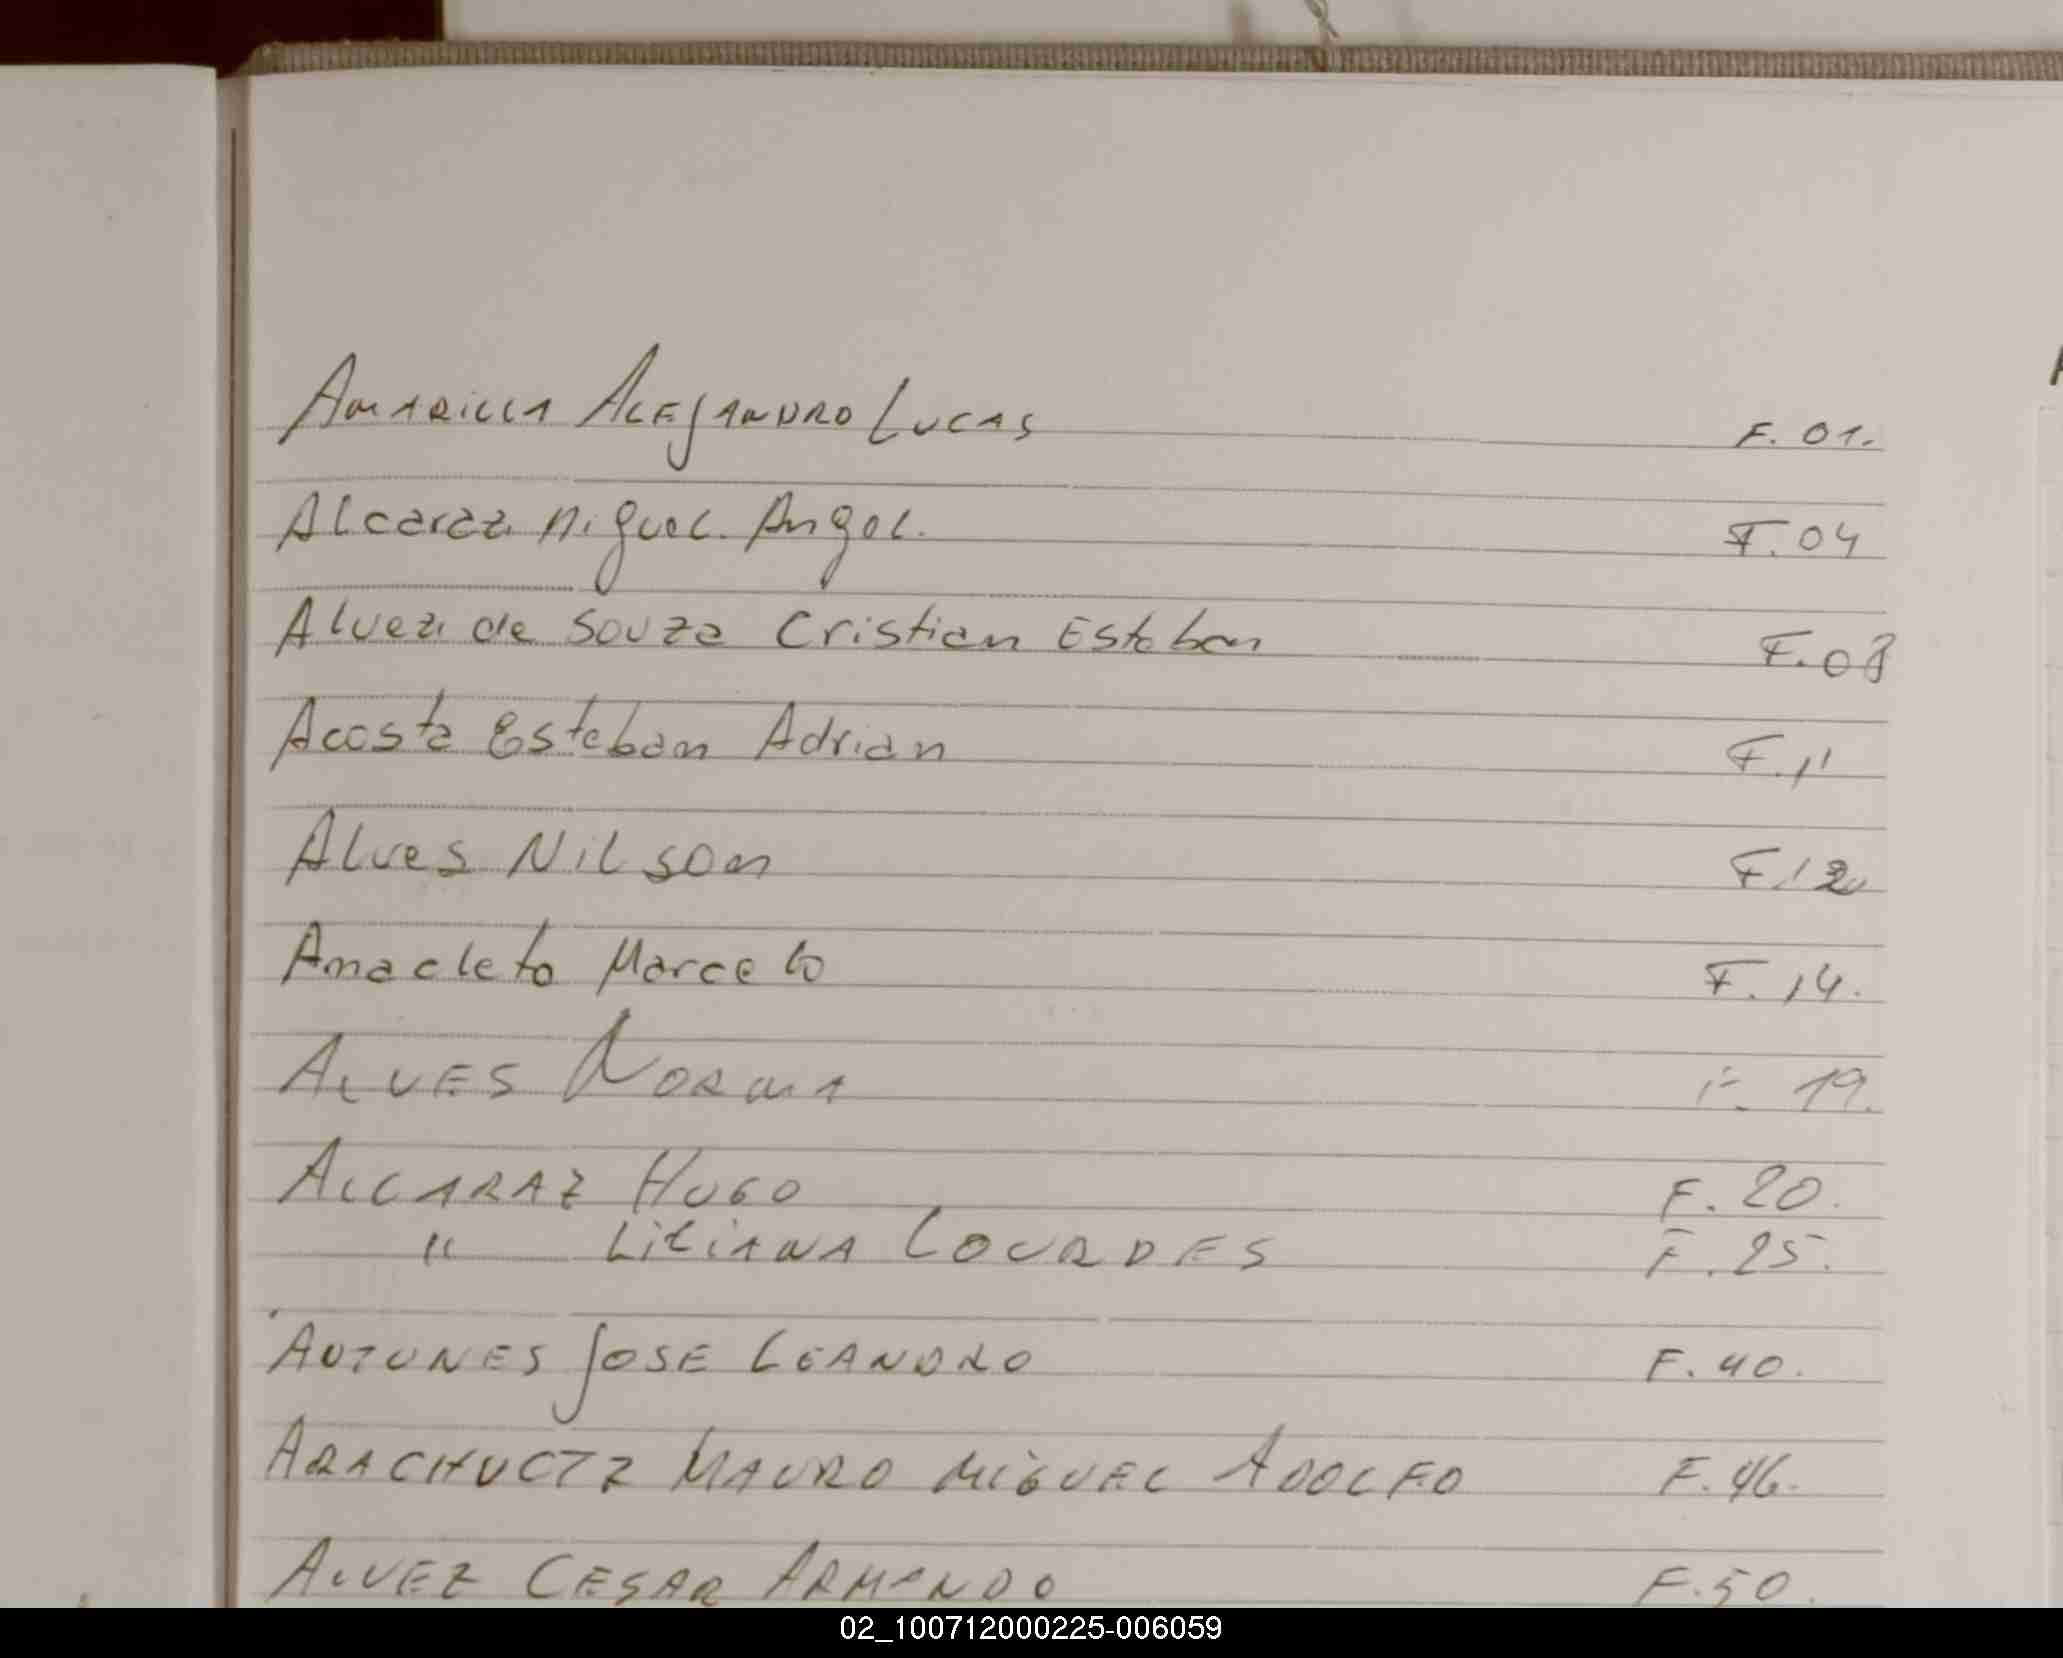 AMARILLA ALEJANDRO LUCAS F. 01.
Alcaraz Miguel. Angel. F. 04
Alvez de Souza Cristian Esteban F. 08
Acosta Esteban Adrian F. 11
Alves Nilson F. 12
Anacleto Marcelo F. 14.
ALVES NORMA F. 19.
ALCARAZ HUGO F. 20.
" LILIANA LOURDES F. 25.
ANTUNES JOSE LEANDRO F. 40.
MAURO MIGUEL ADOLFO F. 46.
ALVEZ CESAR ARMANDO F. 50.
02_100712000225-006059